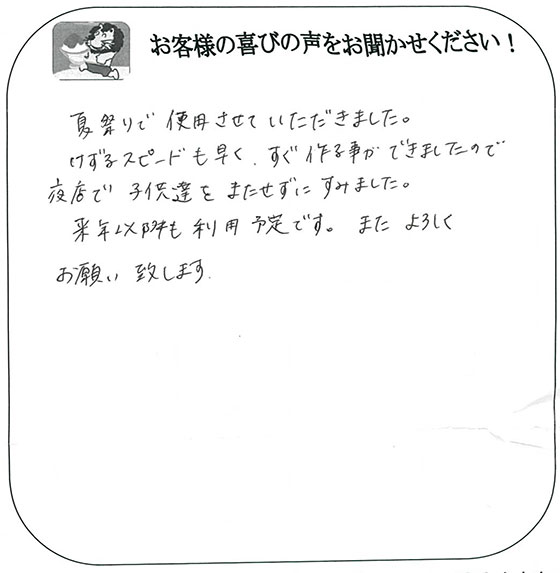 お客様の喜びの声をお聞かせください！
夏祭りで使用させていただきました。
けずるスピードも早く、すぐ作る事ができましたので
夜店で子供達をまたせずにすみました。
来年以降も利用予定です。また よろしく
お願い致します.